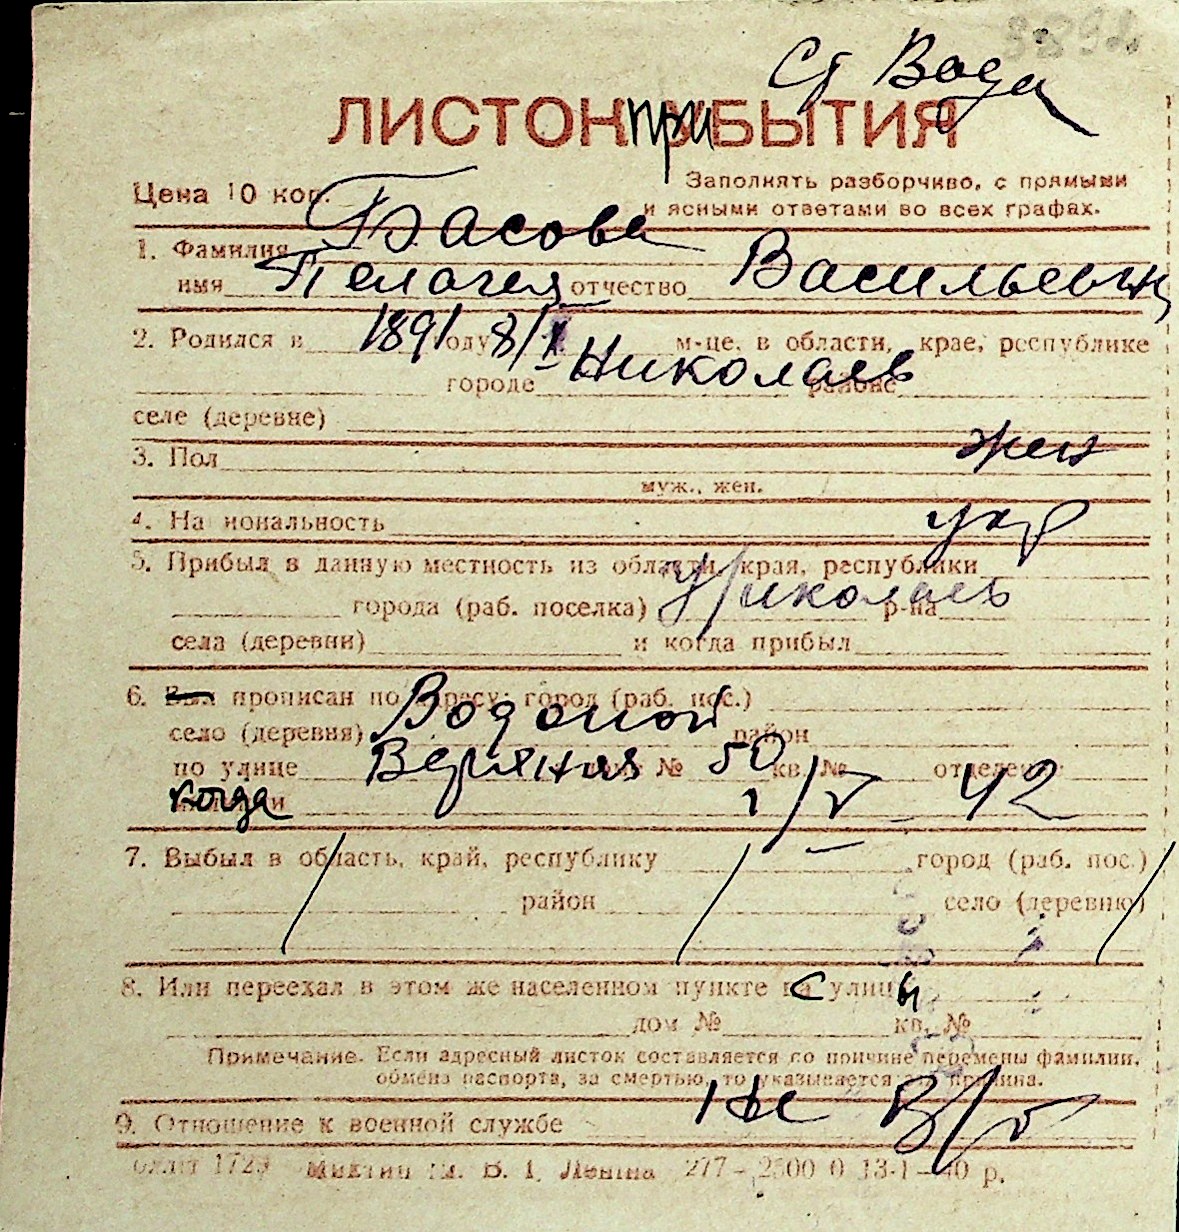 3892
Ст Вода
ЛИСТОК при БЫТИЯ
Цена 10 коп. Заполнять разборчиво, с прямыми
и ясными ответами во всех графах.
1. Фамилия Басова
имя Пелагея отчество Васильевн
2. Родился в 1891 году 8/X м-це, в области, крае, республике
городе Николаев районе
селе (деревне)
3. Пол жен
муж., жен.
4. Национальность укр
5. Прибыл в данную местность из области, края, республики
города (раб. поселка) Николаев р-на
села (деревни) и когда прибыл
6. Был прописан по адресу: город (раб. пос.)
село (деревня) Водопой район
по улице дому № 50 кв. № отделение
когда 1/V - 42
7. Выбыл в область, край, республику город (раб. пос.)
район село (деревню)
8. Или переехал в этом же населенном пункте с улицы
дом № кв. №
Примечание. Если адресный листок составляется по причине перемены фамилии,
обмена паспорта, за смертью, то указывается эта причина.
9. Отношение к военной службе Не в/о
1729 В. И. Ленина 277 - 2500 0 13-1-40 р.